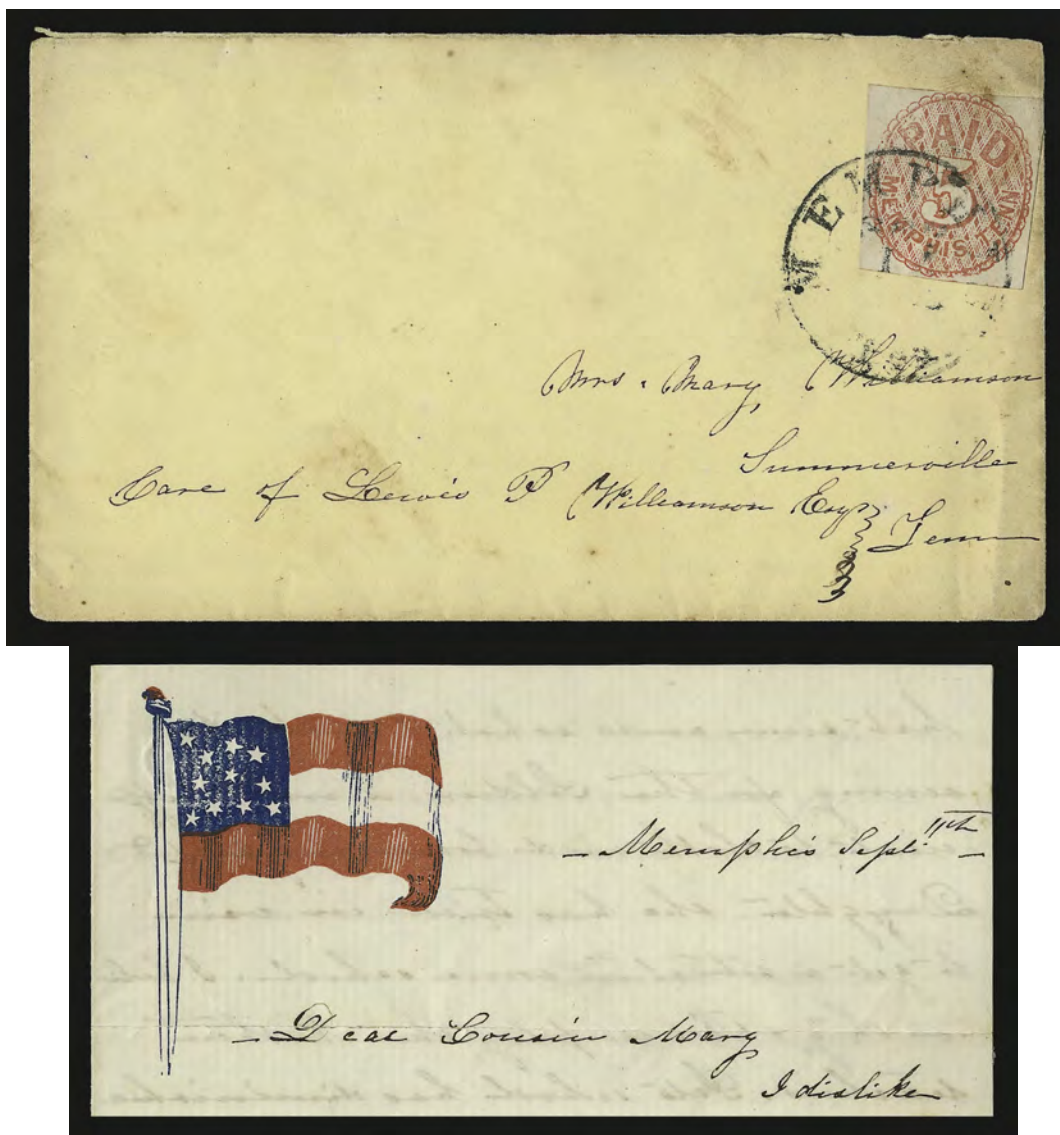 PAID
5
MEMPHIS, TENN.
MEMPHIS
Mrs. Mary Williamson
Summerville
Care of Lewis P Williamson Esq
Tenn
- Memphis Sept. 11th -
- Dear Cousin Mary
I dislike